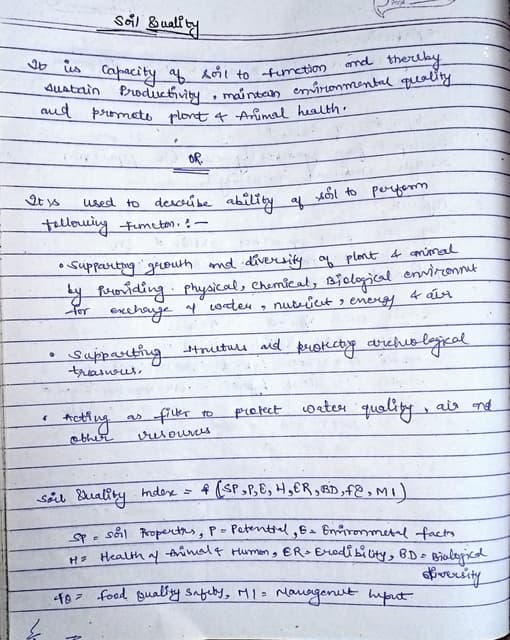 Soil Quality
It is capacity of soil to function and thereby
sustain Productivity, maintain environmental quality
and promote plant & Animal health.
OR
It is used to describe ability of soil to perform
following function. :-
• Supporting growth and diversity of plant & animal
by Providing physical, chemical, Biological environmt
for exchange of water, nutrient, energy & air
• Supporting structure and protecting archeological
treasures.
• Acting as filter to protect water quality, air and
other resources
Soil Quality Index = f (SP, P, E, H, ER, BD, FQ, MI)
SP = Soil Properties, P = Potential, E = Environmetal factor
H = Health of Animal & Human, ER = Erodibility, BD = Biological
diversity
FQ = food Quality Safety, MI = Management Input